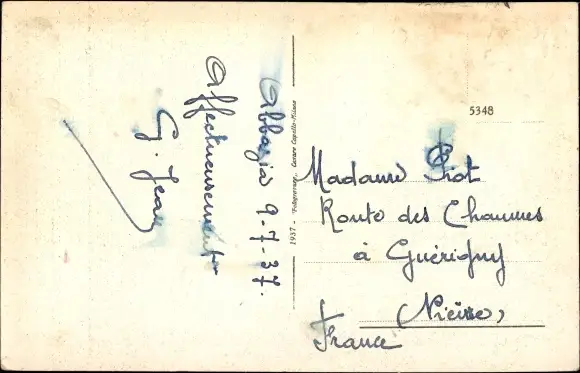 Abbazia 9-7-37.
Affectueusement
G. Jean
1937 - Fotogravure - Cesare Capello-Milano
5348
Madame Piot
Route des Chaumes
à Guérigny
(Nièvre)
France